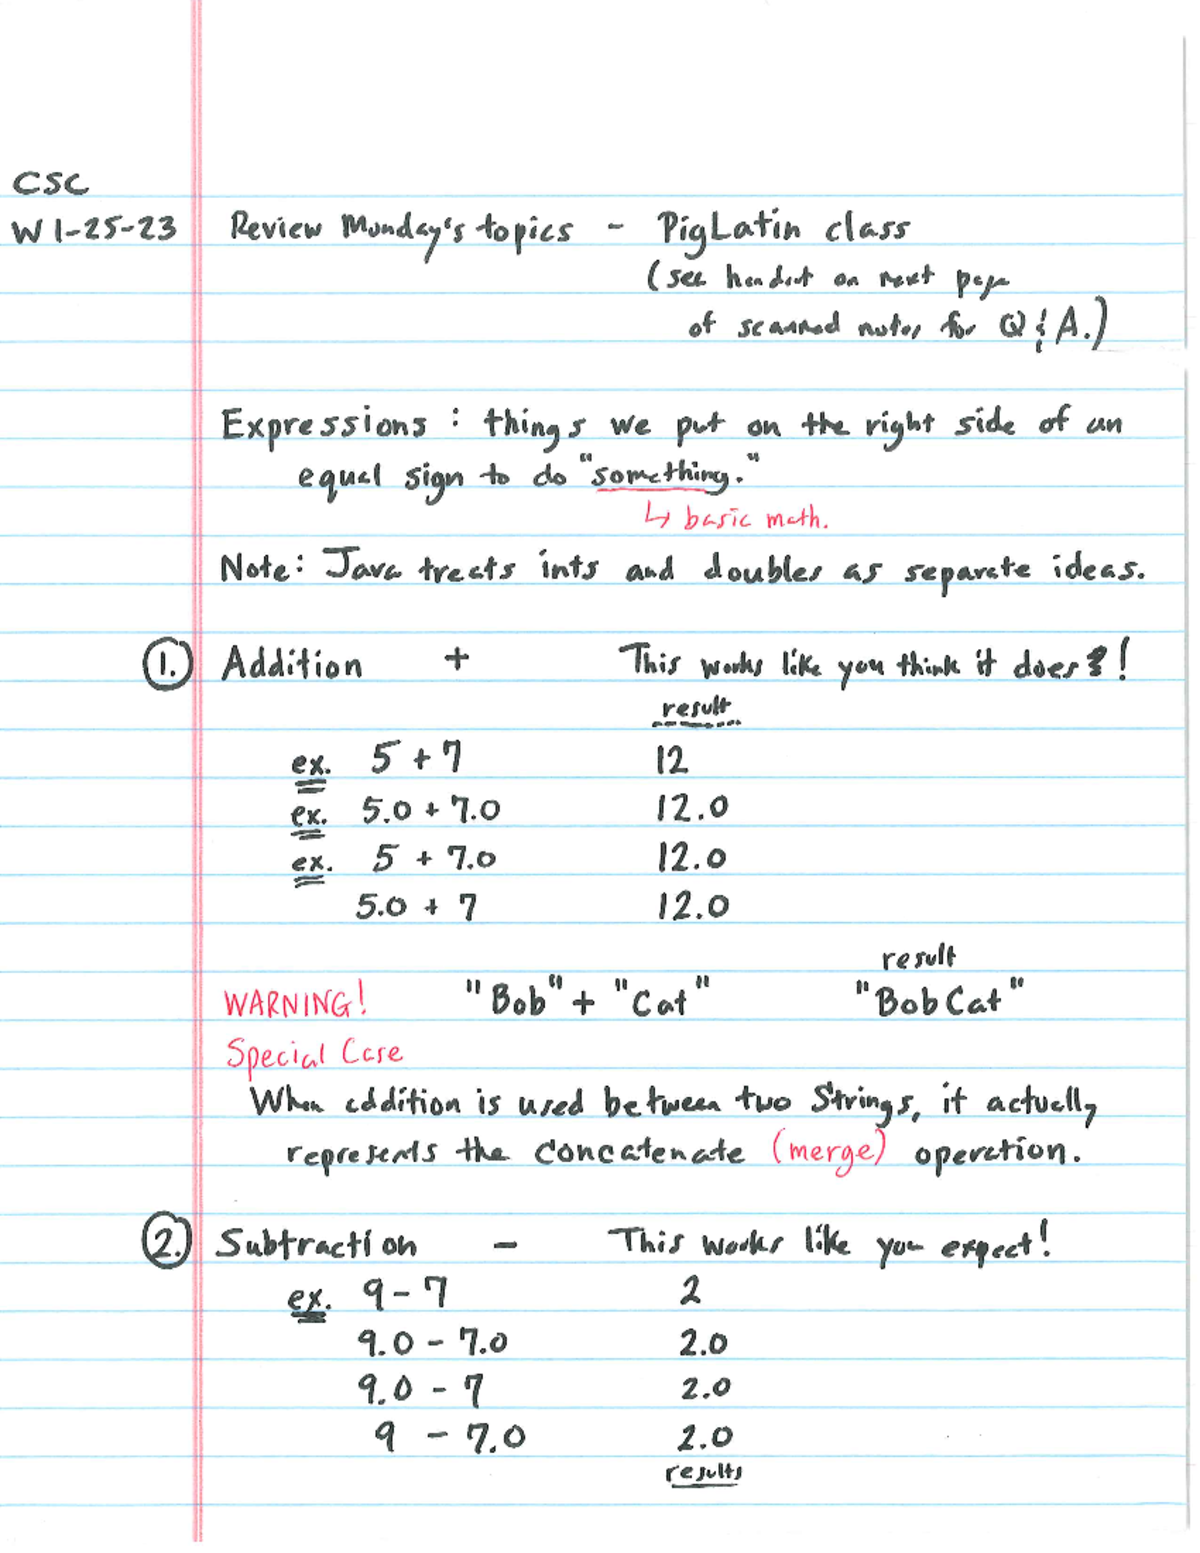 CSC
W 1-25-23 Review Monday's topics - PigLatin class
(see handout on next page
of scanned notes for Q & A.)
Expressions : things we put on the right side of an
equal sign to do "something."
↳ basic math.
Note: Java treats ints and doubles as separate ideas.
1. Addition + This works like you think it does !
result
ex. 5 + 7 12
ex. 5.0 + 7.0 12.0
ex. 5 + 7.0 12.0
5.0 + 7 12.0
result
WARNING! "Bob" + "Cat" "BobCat"
Special Case
When addition is used between two Strings, it actually
represents the concatenate (merge) operation.
2. Subtraction - This works like you expect!
ex. 9 - 7 2
9.0 - 7.0 2.0
9.0 - 7 2.0
9 - 7.0 2.0
results